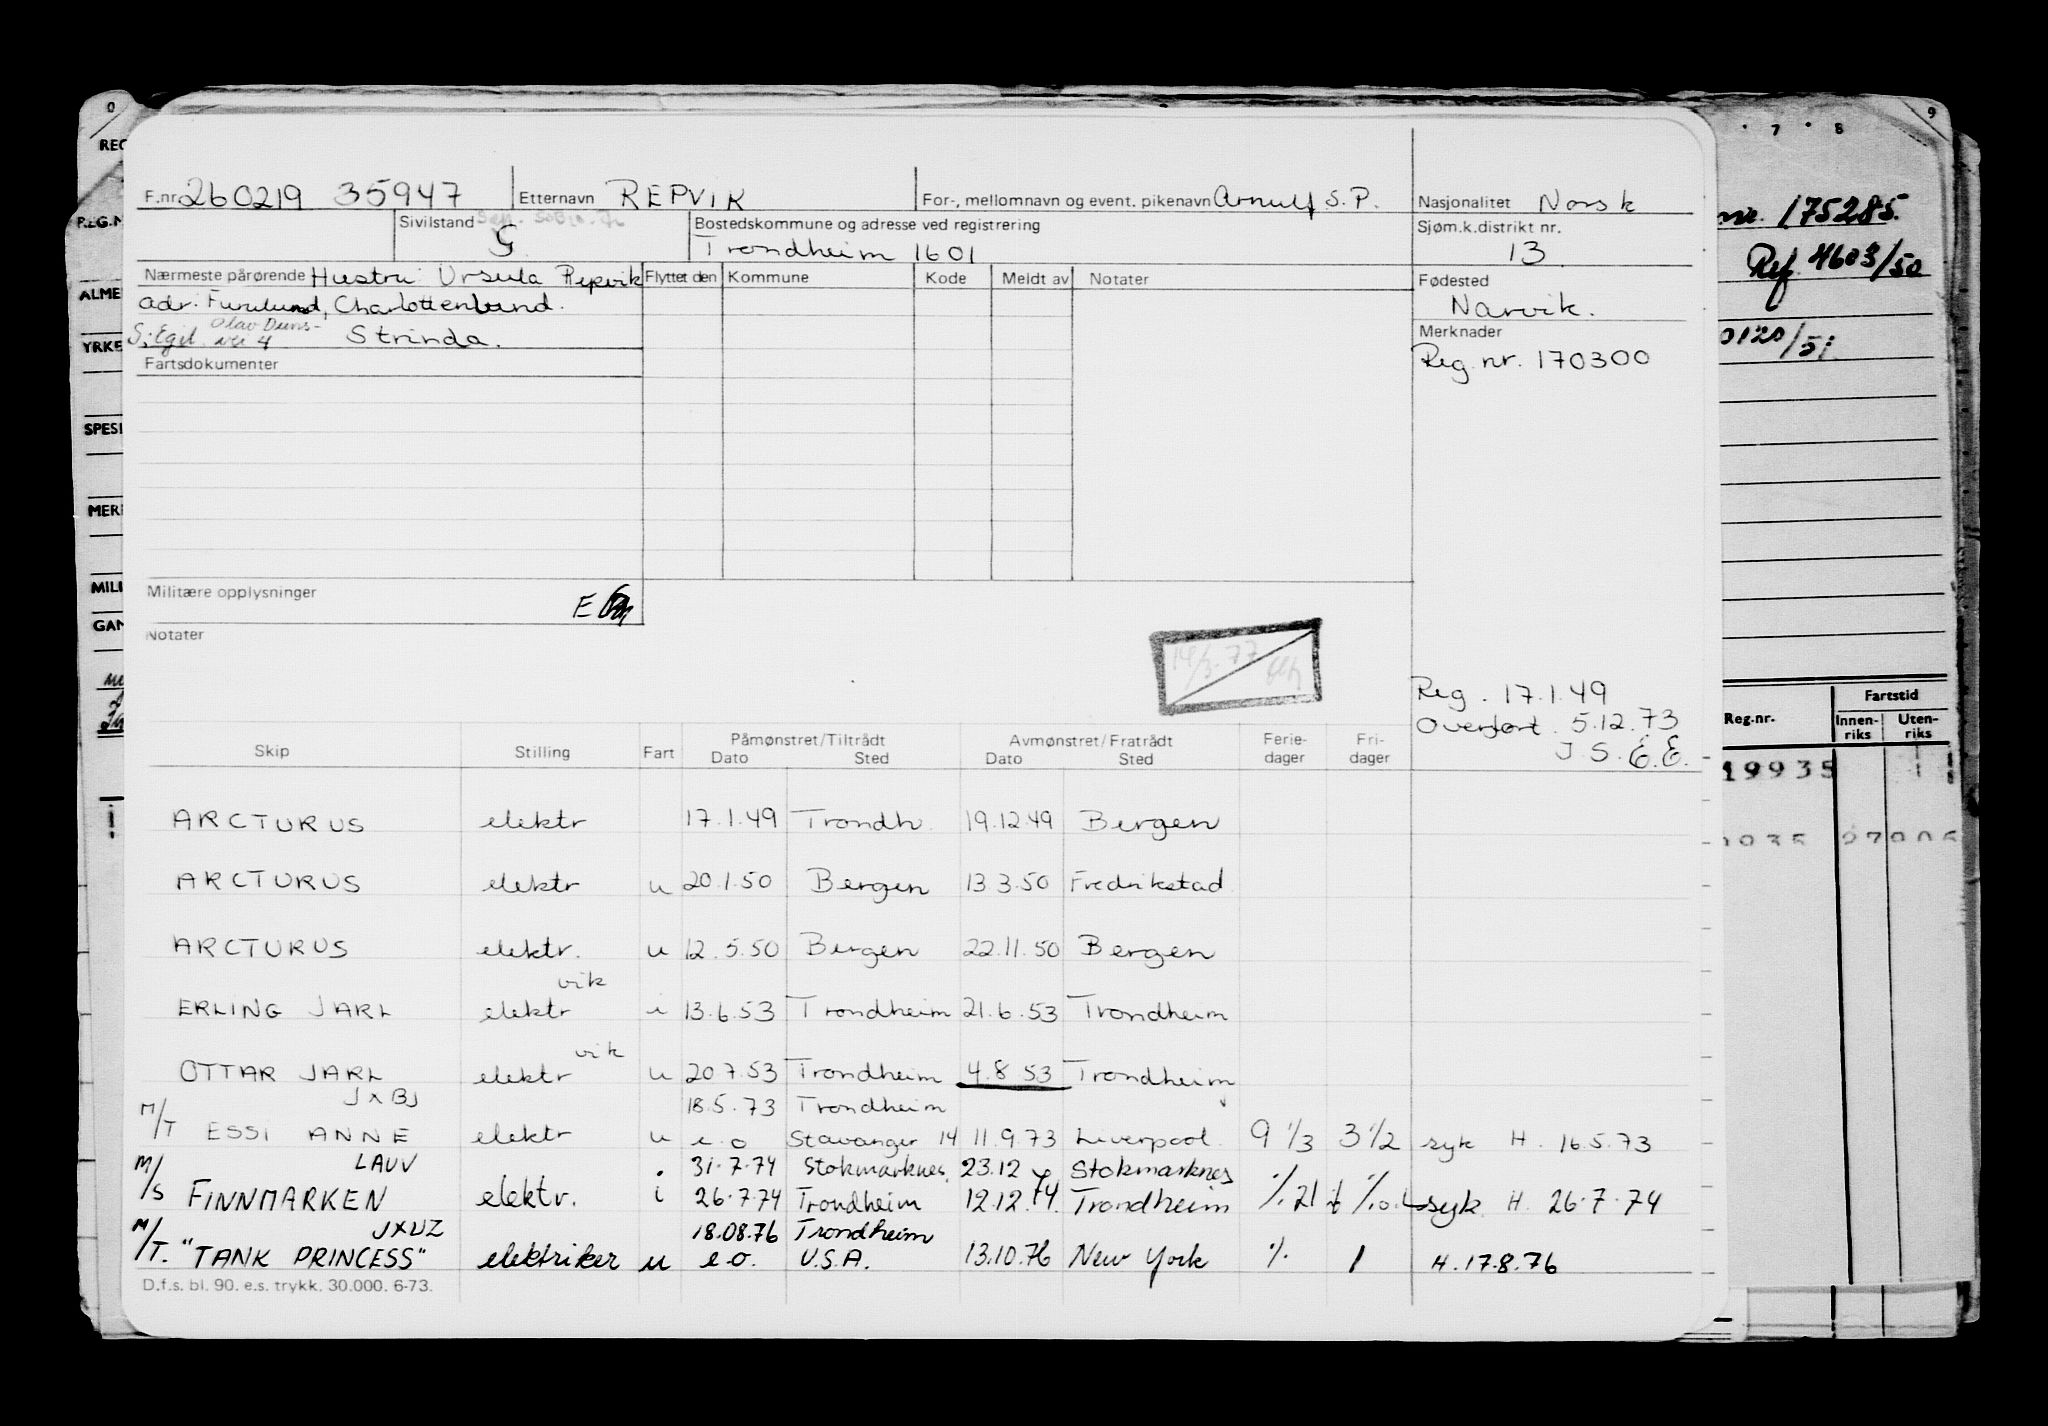 0 7 8 9
F.nr. 260219 35947 Etternavn REPVIK For-, mellomnavn og event. pikenavn Arnulf S.P. Nasjonalitet Norsk
Sivilstand G Bostedskommune og adresse ved registrering Sjøm.k.distrikt nr.
Trondheim 1601 13
Nærmeste pårørende Hustru Ursula Repvik Flyttet den Kommune Kode Meldt av Notater Fødested
adr. Furulund, Charlottenlund. Narvik.
S: Egil Strinda. Merknader
Fartsdokumenter Reg.nr. 170300
Militære opplysninger E
Notater
14/3-77
Reg. 17.1.49
Overført. 5.12.73
J.S. E.E.
Skip Stilling Fart Påmønstret/Tiltrådt Dato Sted Avmønstret/Fratrådt Dato Sted Ferie-dager Fri-dager
ARCTURUS elektr 17.1.49 Trondh. 19.12.49 Bergen
ARCTURUS elektr u 20.1.50 Bergen 13.3.50 Fredrikstad
ARCTURUS elektr. u 12.5.50 Bergen 22.11.50 Bergen
vik
ERLING JARL elektr i 13.6.53 Trondheim 21.6.53 Trondheim
vik
OTTAR JARL elektr u 20.7.53 Trondheim 4.8.53 Trondheim
JXBJ 18.5.73 Trondheim
M/T ESSI ANNE elektr u e.o Stavanger 14 11.9.73 Liverpool. 9 1/3 3 1/2 syk H. 16.5.73
LAUV 31.7.74 Stokmarknes, 23.12 Stokmarknes
M/S FINNMARKEN elektr. i 26.7.74 Trondheim 12.12.74. Trondheim syk H. 26.7.74
JXUZ 18.08.76 Trondheim
M/T. "TANK PRINCESS" elektriker u e.o. U.S.A. 13.10.76 New York % 1 H. 17.8.76
D.f.s. bl. 90. e.s. trykk. 30.000. 6-73.
REG
REG.N
ALME
YRKE
SPESI
MERK
MILI
GAN
175285.
Ref. 4603/50
0120/51
Reg.nr. Fartstid
Innen-riks Uten-riks
19935